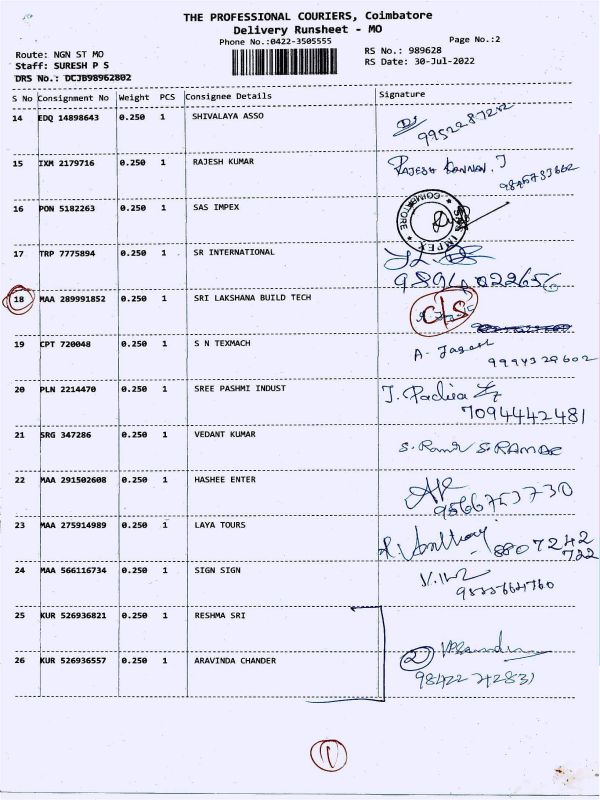 THE PROFESSIONAL COURIERS, Coimbatore
Delivery Runsheet - MO
Phone No.:0422-3505555
Page No.:2
Route: NGN ST MO
RS No.: 989628
Staff: SURESH P S
RS Date: 30-Jul-2022
DRS No.: DCJB98962802
S No Consignment No Weight PCS Consignee Details Signature
14 EDQ 14898643 0.250 1 SHIVALAYA ASSO
15 IXM 2179716 0.250 1 RAJESH KUMAR RAJESH KANNAN. J
16 PON 5182263 0.250 1 SAS IMPEX
COIMBATORE * SAS IMPEX *
17 TRP 7775894 0.250 1 SR INTERNATIONAL
18 MAA 289991852 0.250 1 SRI LAKSHANA BUILD TECH C/S
19 CPT 720048 0.250 1 S N TEXMACH A. Jagesh
9994329602
20 PLN 2214470 0.250 1 SREE PASHMI INDUST
7094442481
21 SRG 347286 0.250 1 VEDANT KUMAR
22 MAA 291502608 0.250 1 HASHEE ENTER
9566753730
23 MAA 275914989 0.250 1 LAYA TOURS 8807242
722
24 MAA 566116734 0.250 1 SIGN SIGN
25 KUR 526936821 0.250 1 RESHMA SRI
26 KUR 526936557 0.250 1 ARAVINDA CHANDER 2
9842242831
1